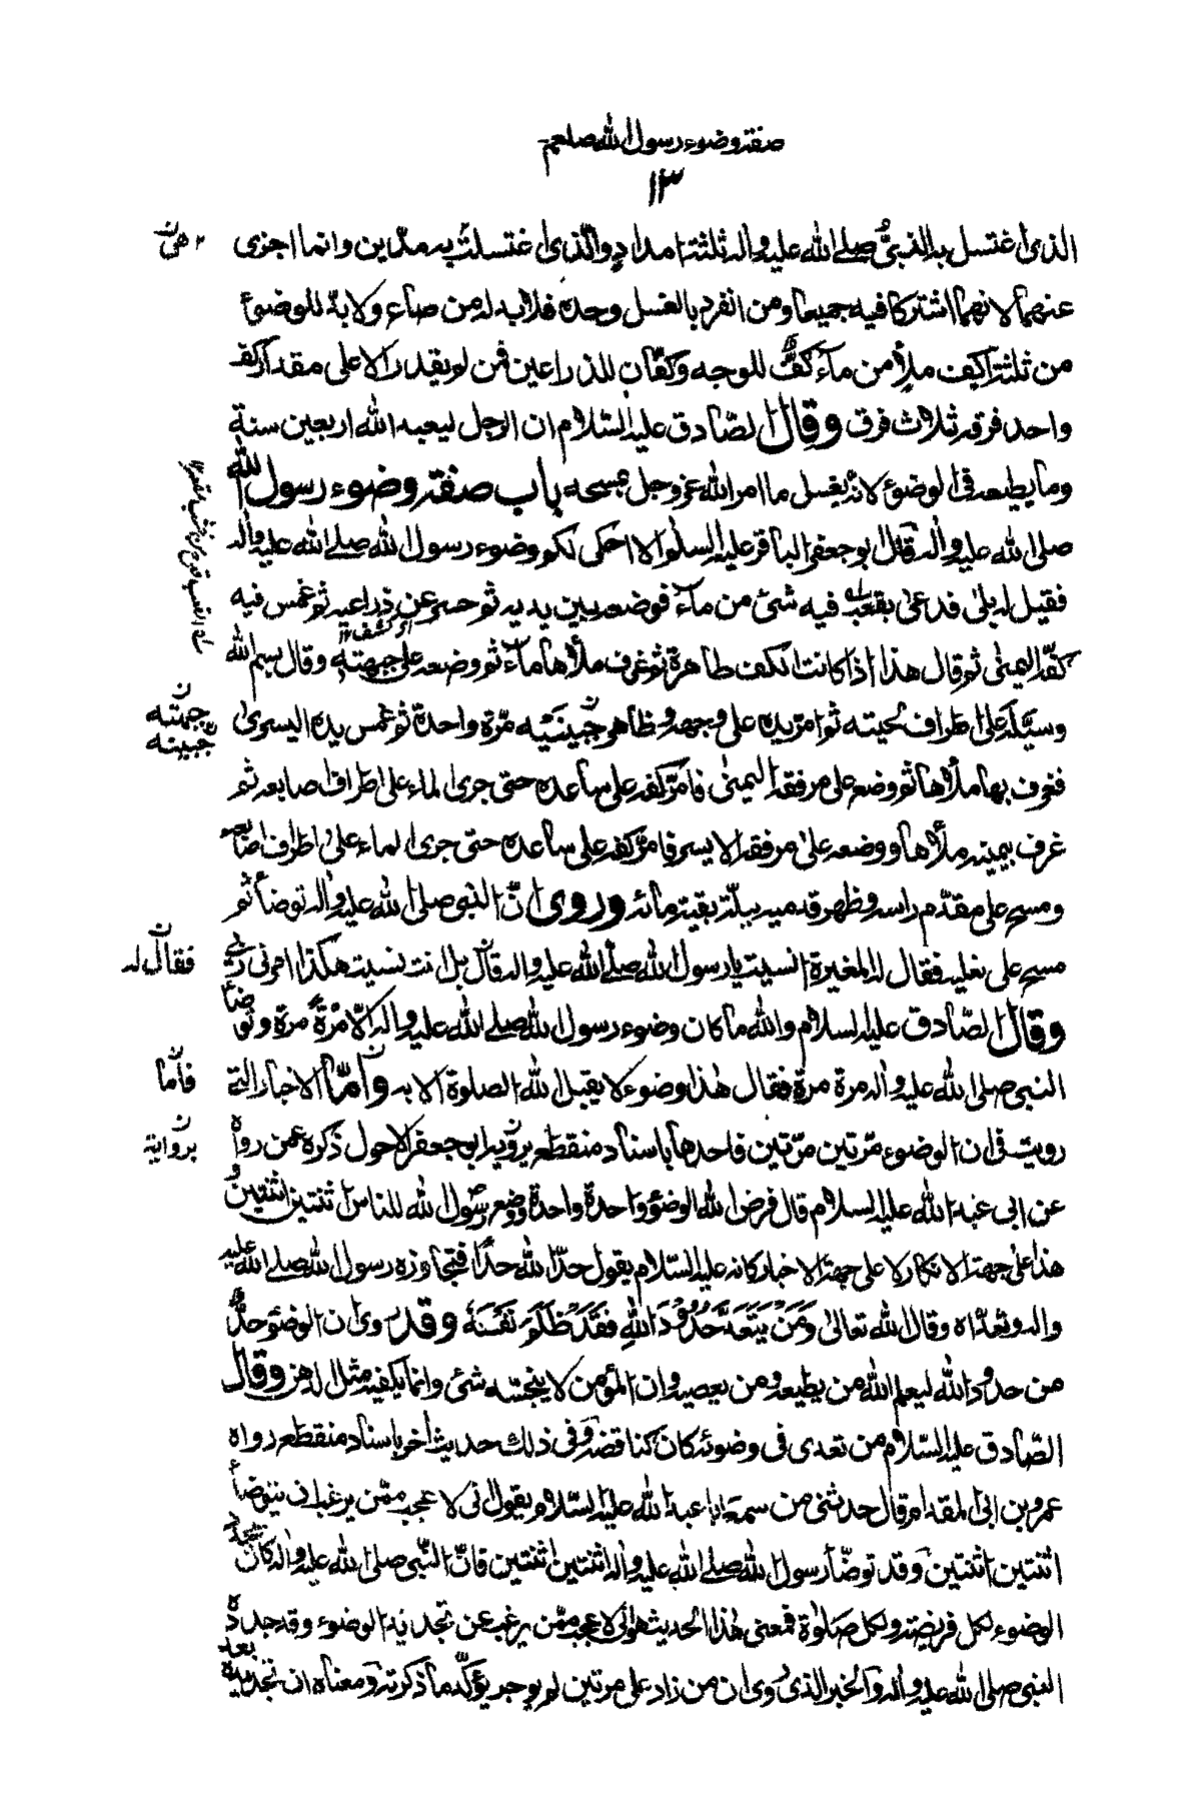 صفة وضوء رسول الله صلعم
١٣
الذى اغتسل به النبىّ صلى الله عليه وآله ثلثة امداد والّذى اغتسلت به مدّين وانما اجزى
٢ هى ن
عنهما لانهما اشتركا فيه جميعا ومن انفرد بالغسل وحده فلابد له من صاع ولابدّ للوضوء
من ثلثة اكف ملأ من ماء كفّ للوجه وكفّان للذراعين فمن لم يقدر الا على مقدار كف
واحد فرقه ثلاث فرق وقال الصّادق عليه السّلام ان الرجل ليعبد الله اربعين سنة
وما يطيعه فى الوضوء لانه يغسل ما امر الله عز وجل بمسحه باب صفة وضوء رسول الله
صلى الله عليه وآله قال ابو جعفر الباقر عليه السلم الا احكى لكم وضوء رسول الله صلى الله عليه وآله
فقيل له بلى فدعى بقعب فيه شئ من ماء فوضعه بين يديه ثم حسر عن ذراعيه ثم غمس فيه
اى كشف
كفّه اليمنى ثم قال هذا اذا كانت الكف طاهرة ثم غرف ملأها ماء ثم وضعه على جبهته وقال بسم الله
وسيّله على اطراف لحيته ثم امرّ يده على وجهه وظاهر جبينيه مرّة واحدة ثم غمس يده اليسرى
جبهته ن
جبينه ن
فغرف بها ملأها ثم وضعه على مرفقه اليمنى فامرّ كفه على ساعده حتى جرى الماء على اطراف اصابعه ثم
غرف بيمينه ملأها ووضعه على مرفقه الايسر فامرّ كفه على ساعده حتى جرى الماء على اطراف اصابعه
ومسح على مقدّم راسه وظهر قدميه ببلّة بقية مائه وروى انّ النبى صلى الله عليه وآله توضأ ثم
مسح على نعليه فقال له المغيرة انسيت يا رسول الله صلى الله عليه وآله قال بل انت نسيت هكذا امرنى ربى
فقال له ن
وقال الصّادق عليه السلام والله ما كان وضوء رسول الله صلى الله عليه وآله الّا مرّة مرة وتوضأ
النبى صلى الله عليه وآله مرة مرة فقال هذا وضوء لا يقبل الله الصلوة الا به وامّا الاخبار التى
فامّا ن
رويت فى ان الوضوء مرّتين مرّتين فاحدها باسناد منقطع يرويه ابو جعفر الاحول ذكره عمن رواه
برواية ن
عن ابى عبد الله عليه السلام قال فرض الله الوضوء واحدة واحدة ووضع رسول الله للناس اثنتين اثنتين و
هذا على جهة الانكار لا على جهة الاخبار كانه عليه السّلام يقول حدّ الله حدًّا فتجاوزه رسول الله صلى الله عليه
وآله وتعدّاه وقال الله تعالى وَمَنْ يَتَعَدَّ حُدُودَ اللهِ فَقَدْ ظَلَمَ نَفْسَهُ وقد روى ان الوضوء حدّ
من حدود الله ليعلم الله من يطيعه ومن يعصيه وان المؤمن لا ينجّسه شئ وانما يكفيه مثل الدهن وقال
الصّادق عليه السّلام من تعدى فى وضوئه كان كناقضه وفى ذلك حديث اخر باسناد منقطع رواه
عمرو بن ابى المقدام قال حدثنى من سمع ابا عبد الله عليه السّلام يقول انى لاعجب ممّن يرغب ان يتوضأ
اثنتين اثنتين وقد توضّأ رسول الله صلى الله عليه وآله اثنتين اثنتين فانّ النّبى صلى الله عليه وآله كان يجدّد
الوضوء لكل فريضة ولكل صلوة فمعنى هذا الحديث هو انى لاعجب ممّن يرغب عن تجديد الوضوء وقد جدده
النبى صلى الله عليه وآله والخبر الذى روى ان من زاد على مرتين لم يوجر يؤكّد ما ذكرته ومعناه ان تجديده بعد